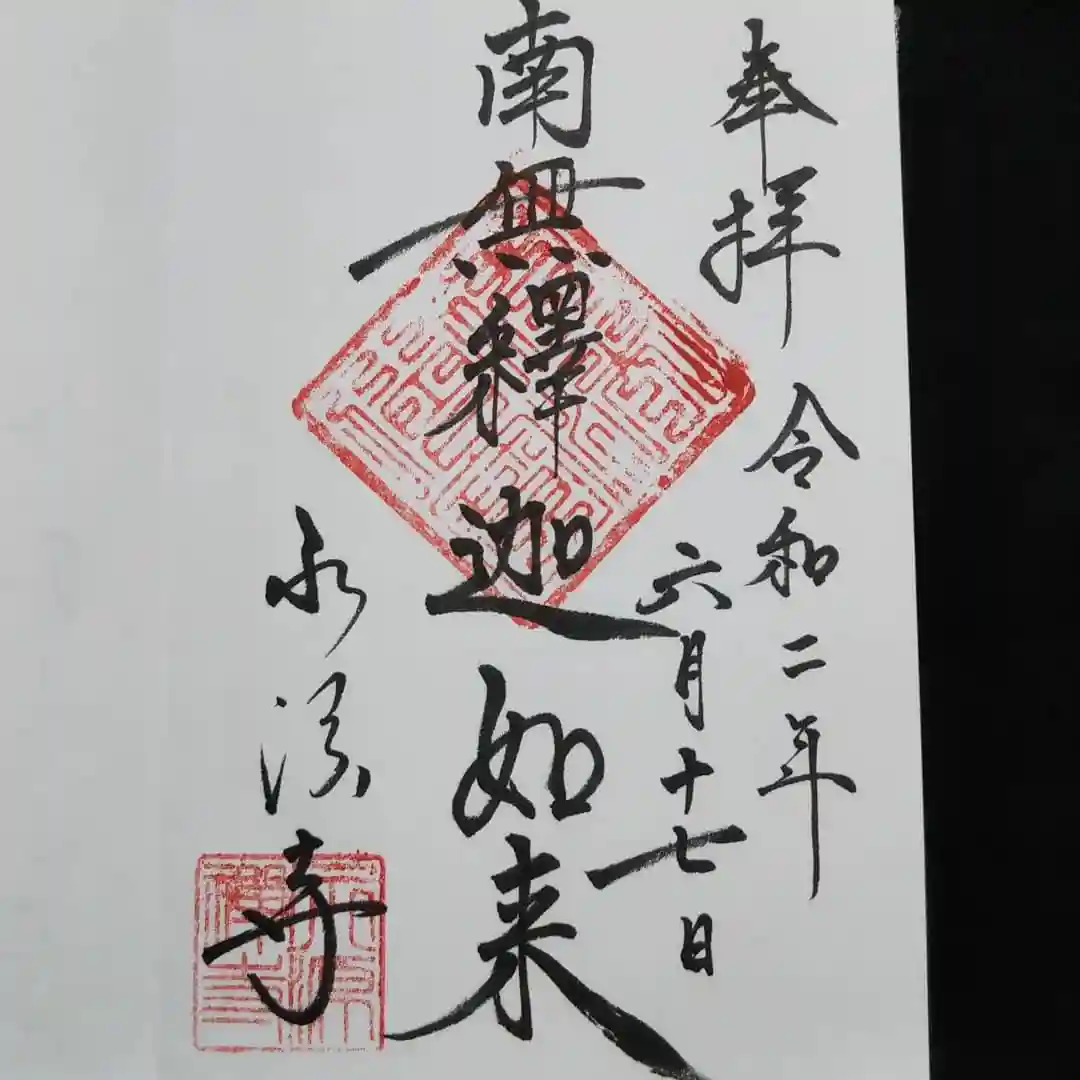 奉拝 令和二年
六月十七日
南無釋迦如来
永 寺